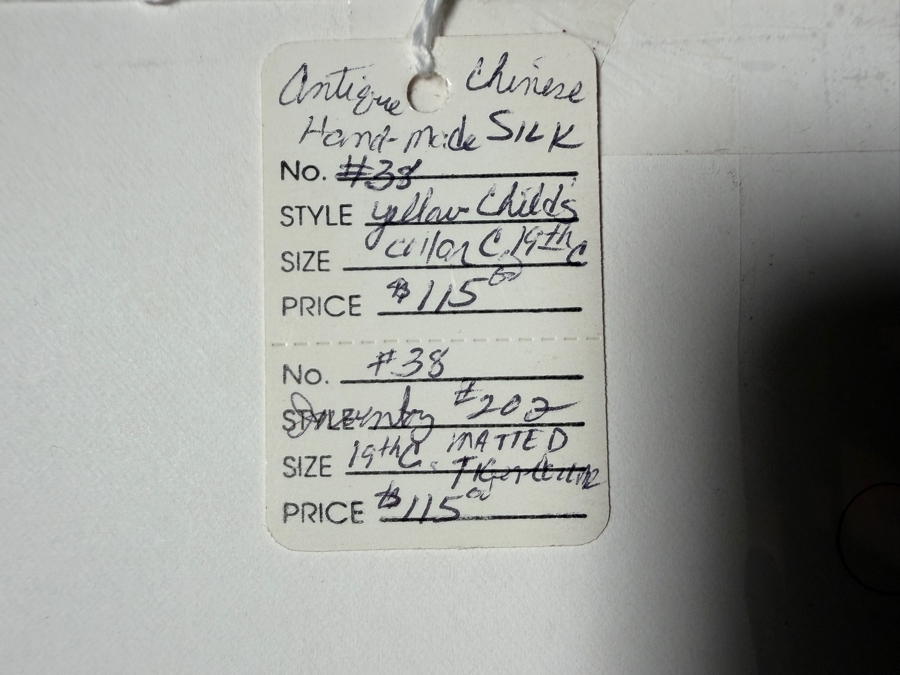 Antique Chinese
Hand-made SILK
No. #38
STYLE yellow Child's
SIZE collar C. 19th C
PRICE $115.00
No. #38
STYLE Inventory #202
SIZE 19th C. MATTED
Tiger Collar
PRICE $115.00